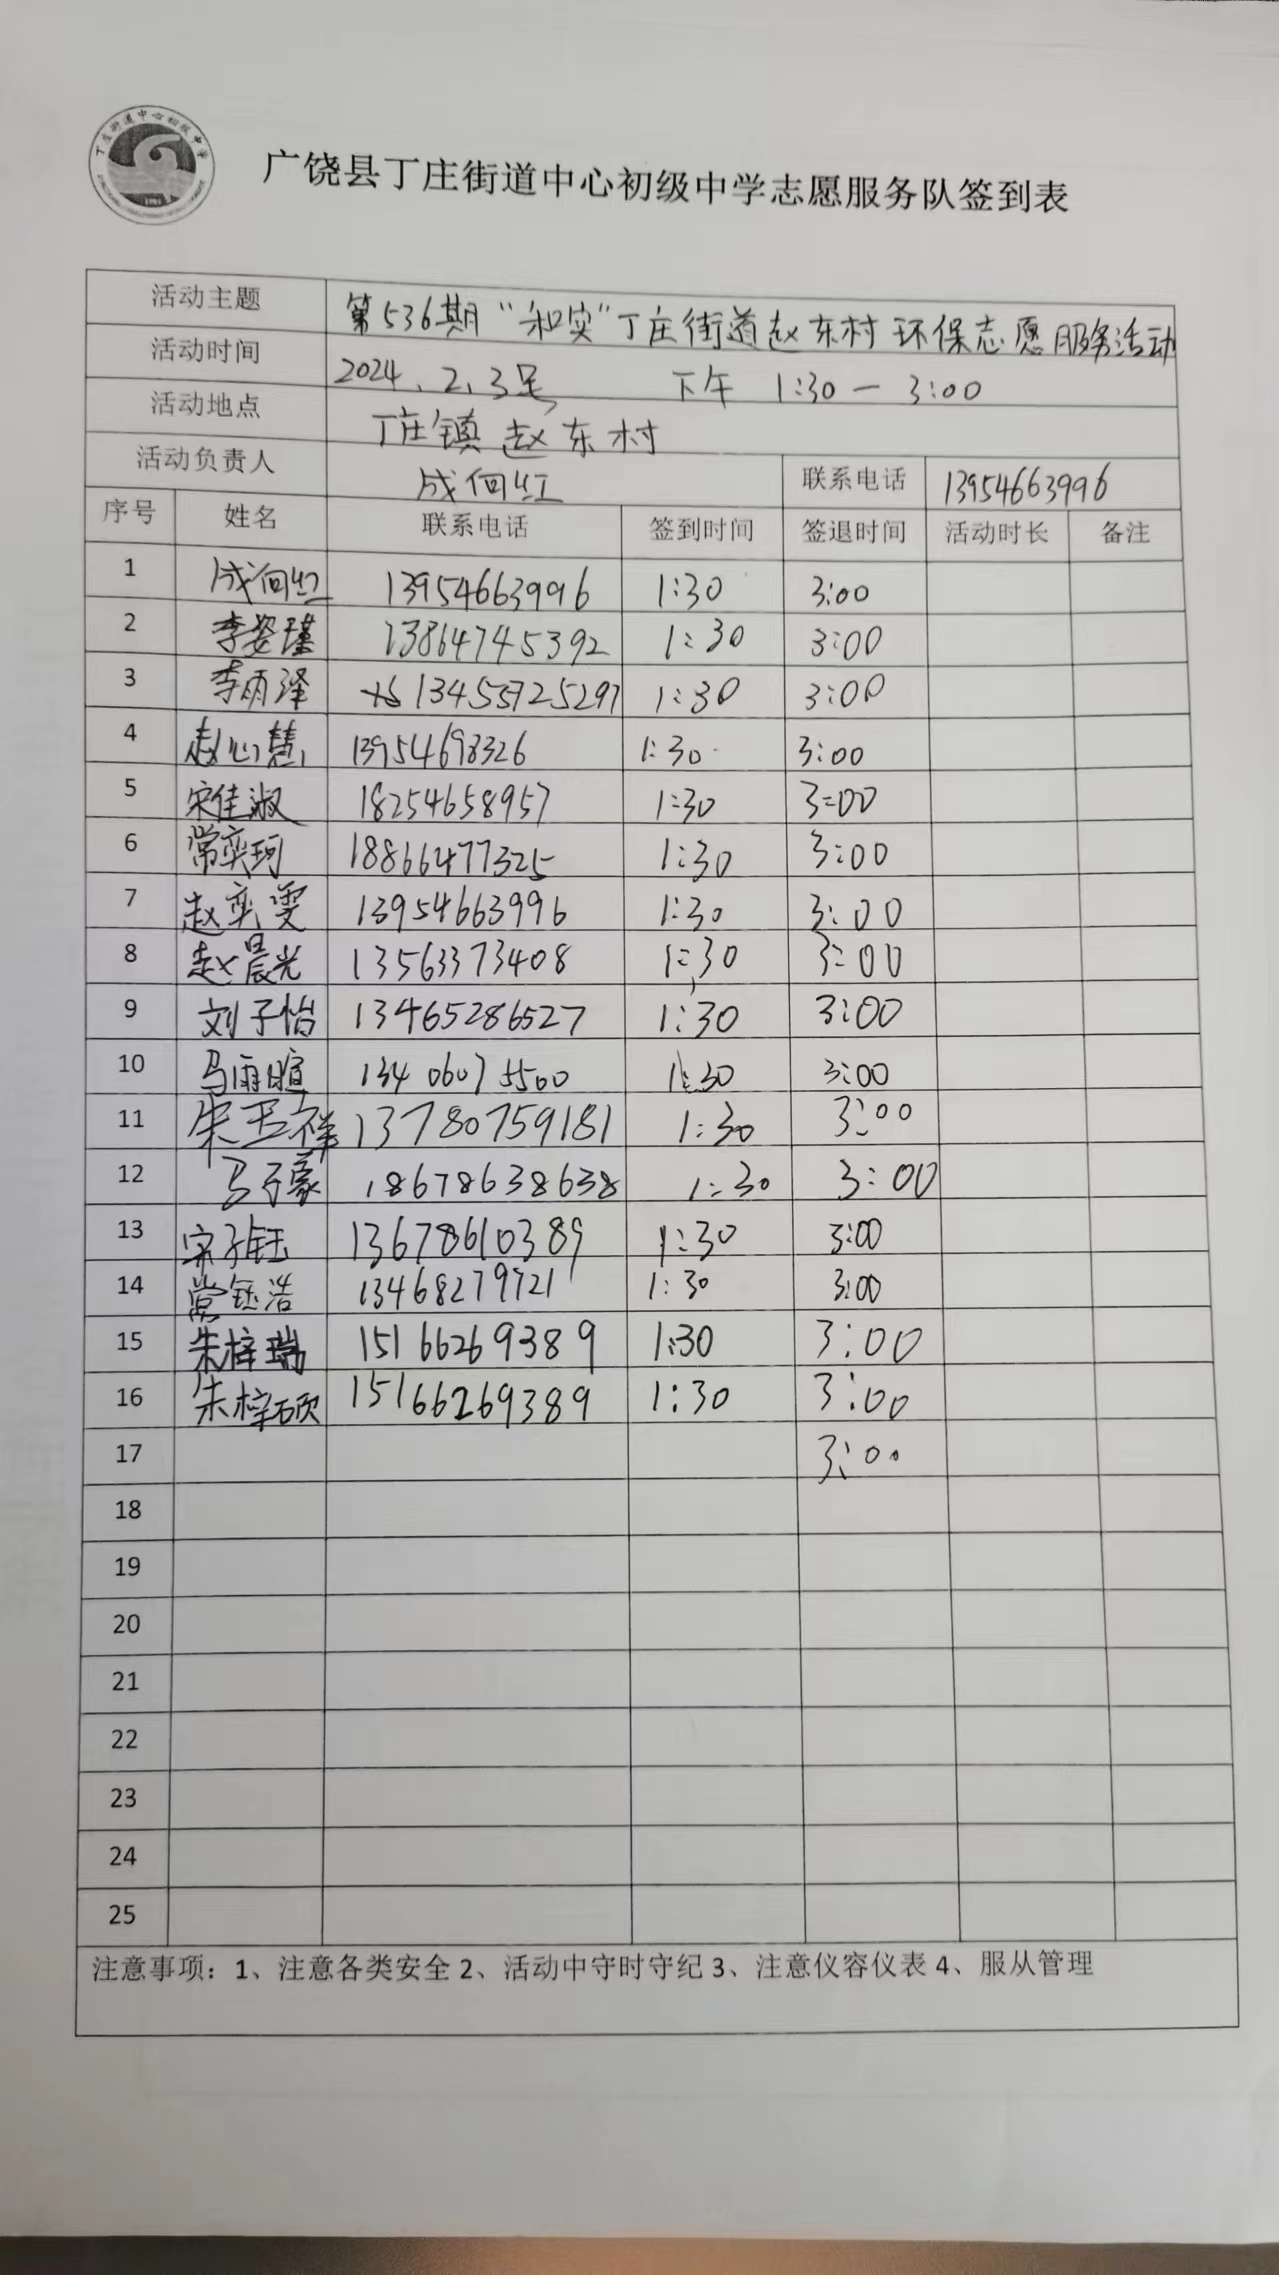 丁庄街道中心初级中学
广饶县丁庄街道中心初级中学志愿服务队签到表
活动主题 第536期“和实”丁庄街道赵东村环保志愿服务活动
活动时间 2024.2.3号 下午 1:30—3:00
活动地点 丁庄镇赵东村
活动负责人 成向红 联系电话 13954663996
序号 姓名 联系电话 签到时间 签退时间 活动时长 备注
1 成向红 13954663996 1:30 3:00
2 李姿瑾 13864745392 1:30 3:00
3 李雨泽 13455725297 1:30 3:00
4 赵心慧 13954698326 1:30 3:00
5 宋佳淑 18254658957 1:30 3:00
6 常奕珂 18866477325 1:30 3:00
7 赵奕雯 13954663996 1:30 3:00
8 赵晨光 13563373408 1:30 3:00
9 刘子怡 13465286527 1:30 3:00
10 马雨暄 13406075500 1:30 3:00
11 朱玉祥 13780759181 1:30 3:00
12 马子豪 18678638638 1:30 3:00
13 宋子钰 13678610389 1:30 3:00
14 常钰浩 13468279721 1:30 3:00
15 朱梓瑞 15166269389 1:30 3:00
16 朱梓硕 15166269389 1:30 3:00
17 3:00
18
19
20
21
22
23
24
25
注意事项：1、注意各类安全 2、活动中守时守纪 3、注意仪容仪表 4、服从管理